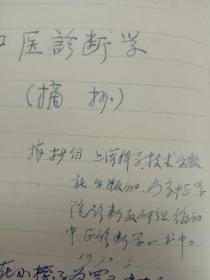 医診断学
(摘抄)
摘抄自上海科学技术出版
社出版的
院診断教研组编的
中医診断学一书中。
1970.5.